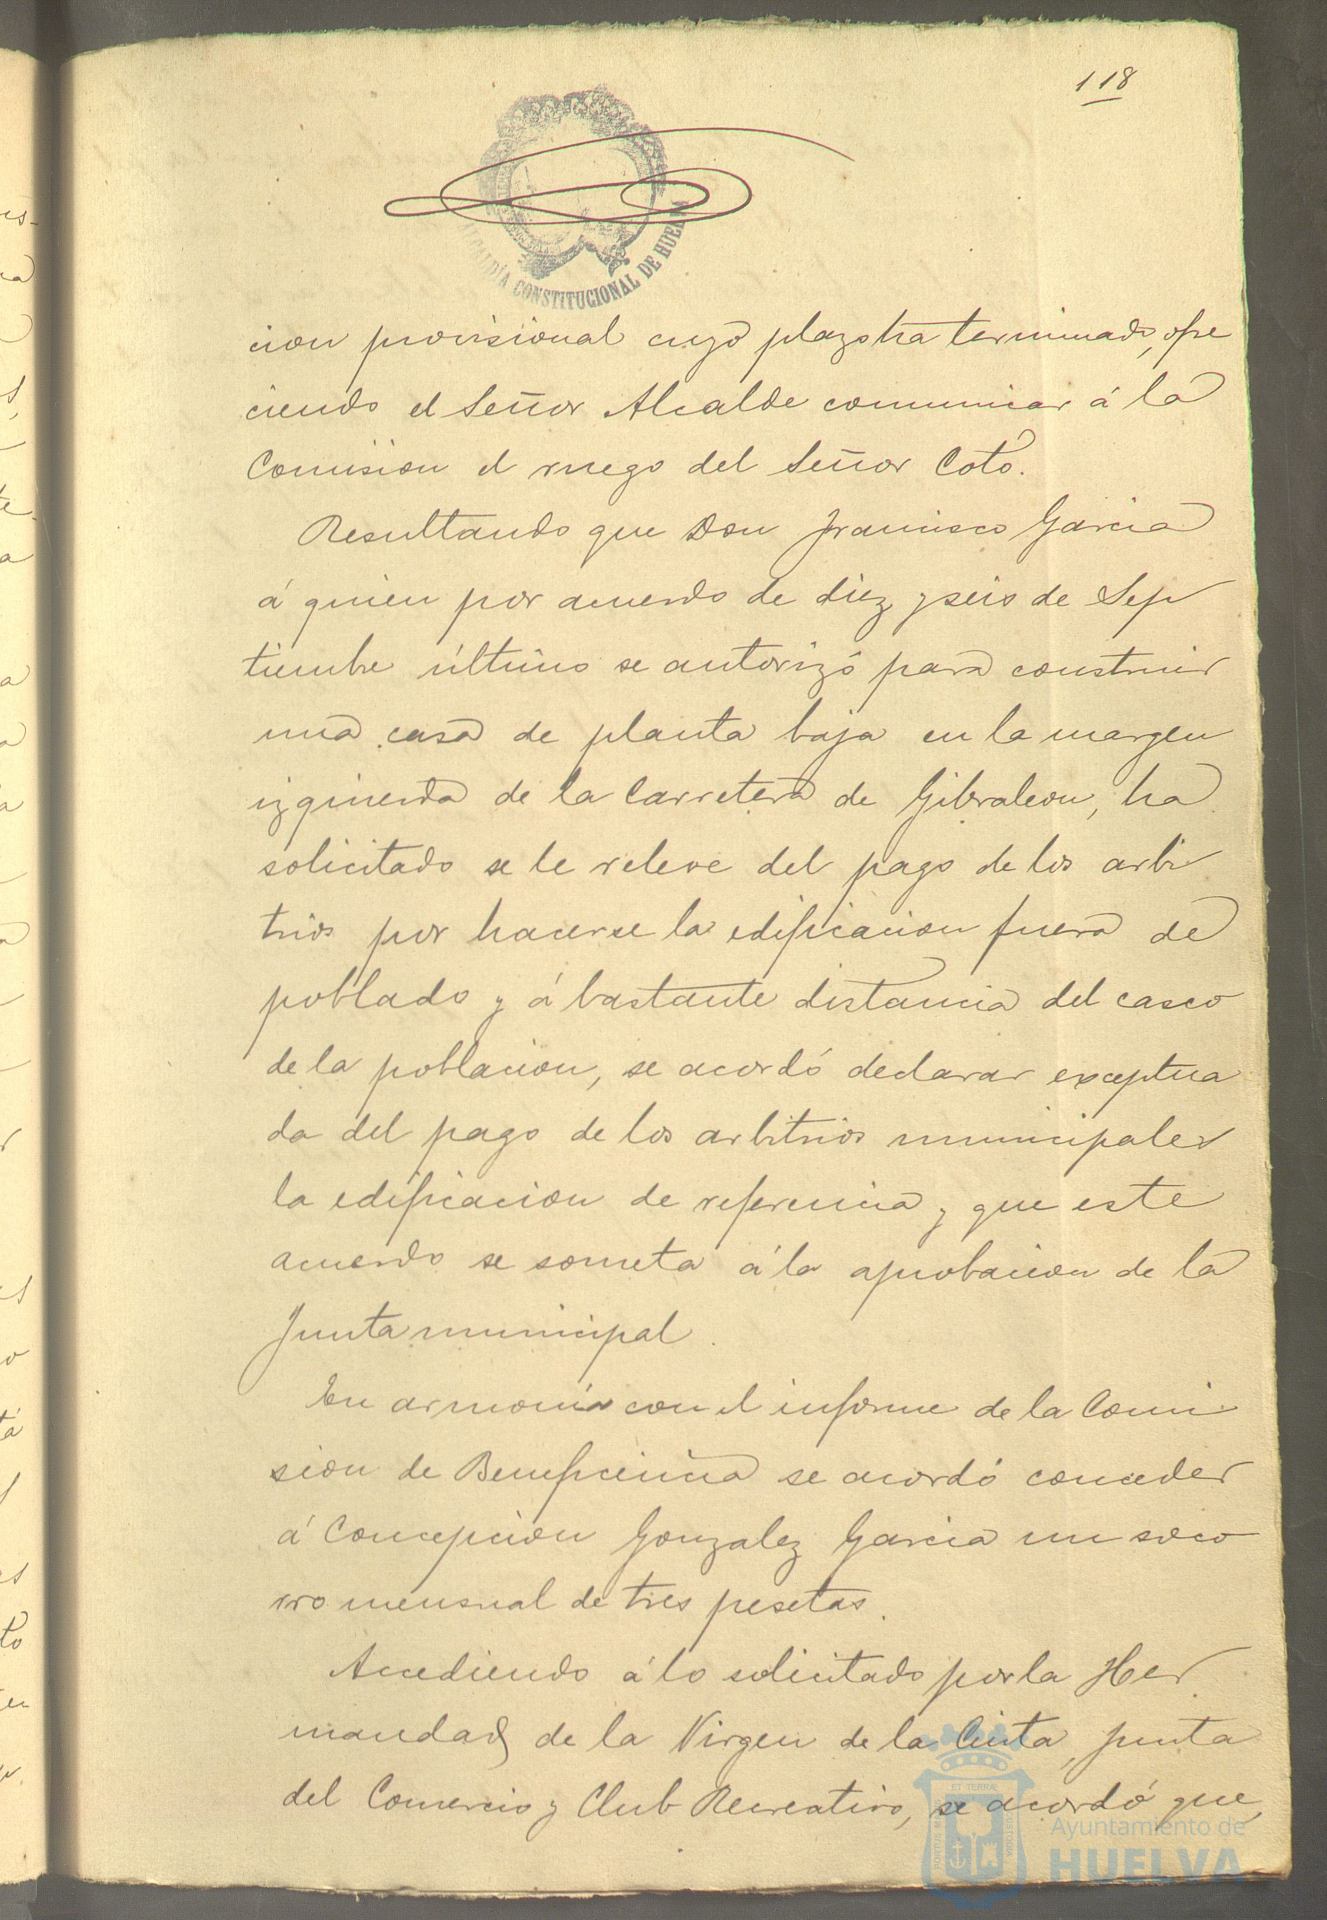 118
ALCALDÍA CONSTITUCIONAL DE HUELVA
cion provisional cuyo plazo ha terminado, ofre
ciendo el Señor Alcalde comunicar á la
Comision el ruego del Señor Coto.
Resultando que Don Francisco Garcia
á quien por acuerdo de diez y seis de Sep
tiembre último se autorizó para construir
una casa de planta baja en la margen
izquierda de la Carretera de Gibraleon, ha
solicitado se le releve del pago de los arbi
trios por hacerse la edificacion fuera de
poblado y á bastante distancia del casco
de la poblacion, se acordó declarar exceptua
da del pago de los arbitrios municipales
la edificacion de referencia y que este
acuerdo se someta á la aprobacion de la
Junta municipal.
En armonia con el informe de la Comi
sion de Beneficencia se acordó conceder
á Concepcion Gonzalez Garcia un soco
rro mensual de tres pesetas.
Accediendo á lo solicitado por la Her
mandad de la Virgen de la Cinta, Junta
del Comercio y Club Recreativo, se acordó que,
Ayuntamiento de
HUELVA